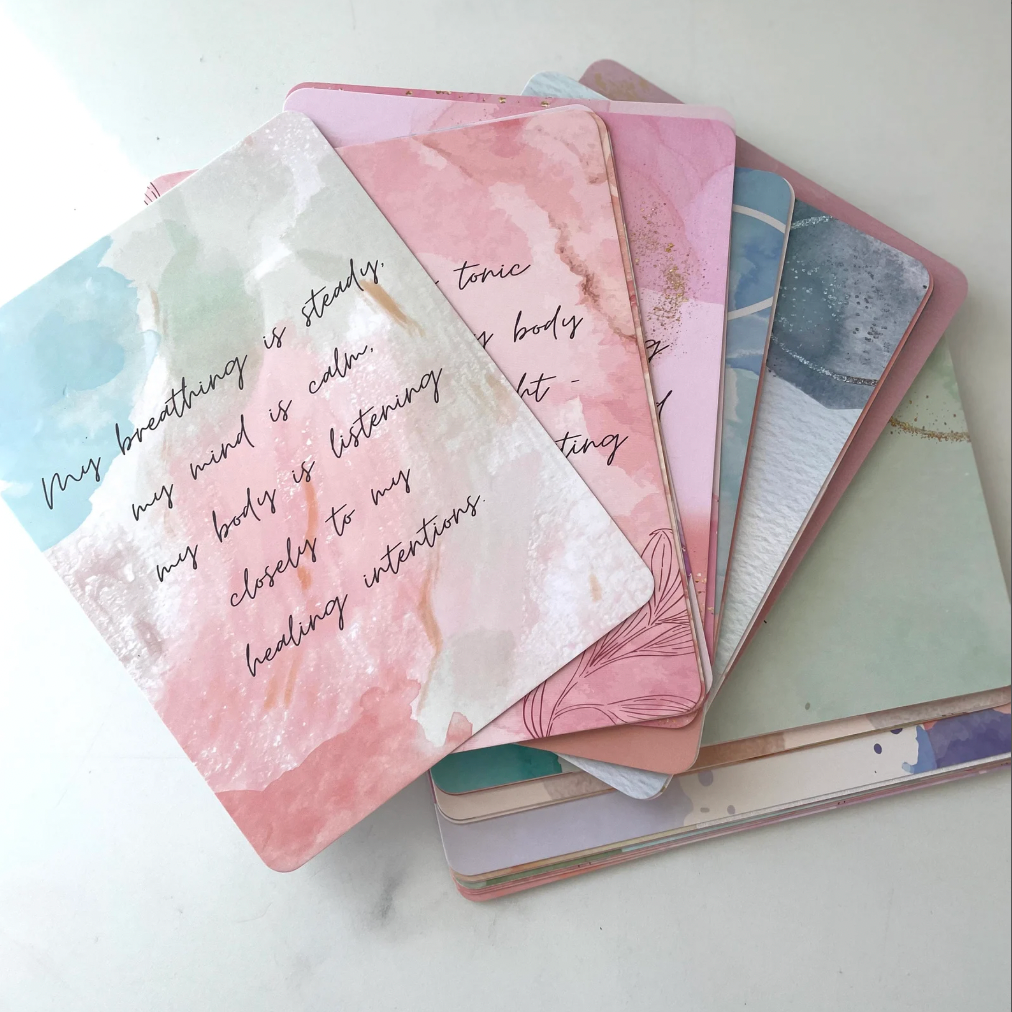 My breathing is steady,
my mind is calm,
my body is listening
closely to my
healing intentions.
tonic
body
-